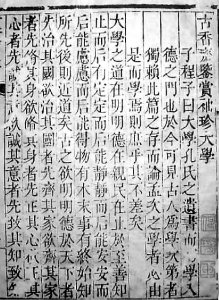 古香齋鑒賞袖珍大學
子程子曰大學孔氏之遺書而初學入
德之門也於今可見古人為學次第者
獨賴此篇之存而論孟次之學者必由
是而學焉則庶乎其不差矣
大學之道在明明德在親民在止於至善知
止而后有定定而后能靜靜而后能安安而
后能慮慮而后能得物有本末事有終始知
所先後則近道矣古之欲明明德於天下者
先治其國欲治其國者先齊其家欲齊其家
者先脩其身欲脩其身者先正其心欲正其
心者先誠其意欲誠其意者先致其知致